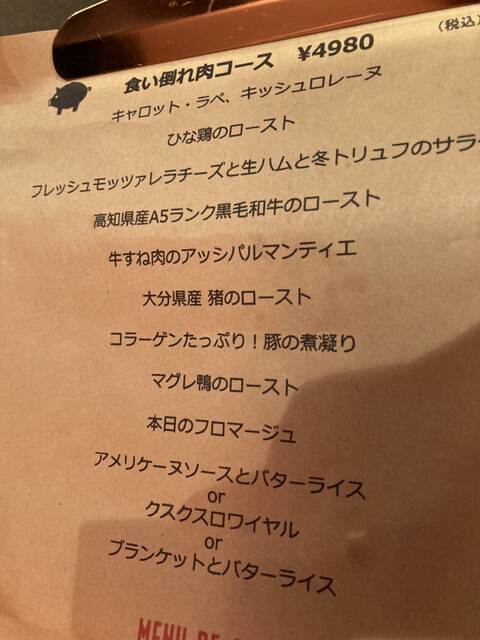 (税込)
食い倒れ肉コース ¥4980
キャロット・ラペ、キッシュロレーヌ
ひな鶏のロースト
フレッシュモッツァレラチーズと生ハムと冬トリュフのサラ
高知県産A5ランク黒毛和牛のロースト
牛すね肉のアッシパルマンティエ
大分県産 猪のロースト
コラーゲンたっぷり！豚の煮凝り
マグレ鴨のロースト
本日のフロマージュ
アメリケーヌソースとバターライス
or
クスクスロワイヤル
or
ブランケットとバターライス
MENU DE